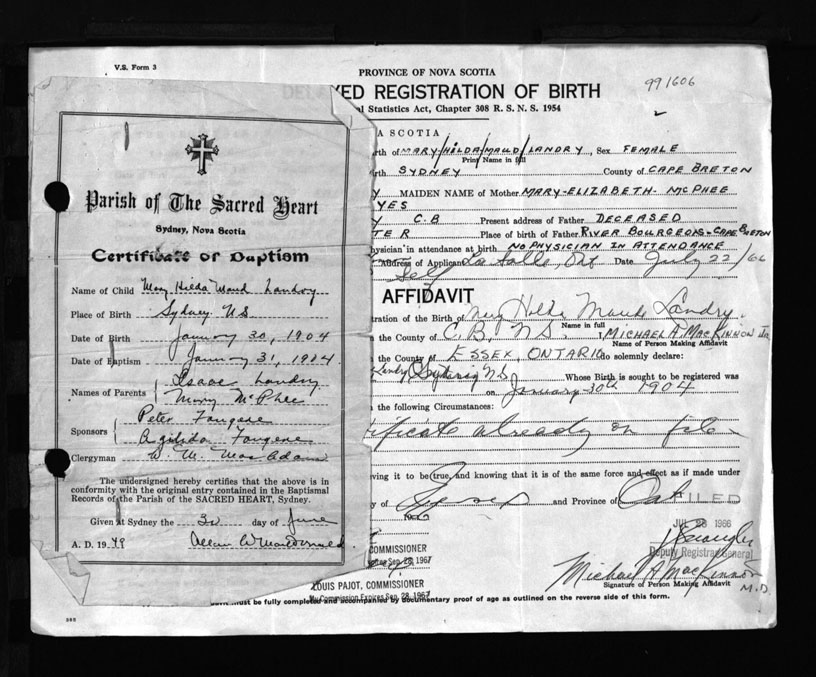 V.S. Form 3
PROVINCE OF NOVA SCOTIA
DELAYED REGISTRATION OF BIRTH
al Statistics Act, Chapter 308 R. S. N. S. 1954
991606
A SCOTIA
irth of MARY/HILDA/MAUD/LANDRY, Sex FEMALE
Print Name in full
irth SYDNEY County of CAPE BRETON
Y MAIDEN NAME of Mother MARY-ELIZABETH- McPHEE
YES
Y C.B Present address of Father DECEASED
TER Place of birth of Father RIVER BOURGEOIS-CAPE BRETON
hysician in attendance at birth NO PHYSICIAN IN ATTENDANCE
Address of Applicant La Salle, Ont Date July 22/66
Self
AFFIDAVIT
tration of the Birth of Mary Hilda Maud Landry.
Name in full
n the County of C.B, N S I, MICHAEL A. MACKINNON
Name of Person Making Affidavit
the County of ESSEX, ONTARIO do solemnly declare:
N.S Whose Birth is sought to be registered was
on January 30th 1904
n the following Circumstances:
ificate already on file
eving it to be true, and knowing that it is of the same force and effect as if made under
ty of Essex and Province of Ont
FILED
JUL 28 1966
Deputy Registrar General
COMMISSIONER
Sep. 28, 1967
Michael A MacKinnon M.D
Signature of Person Making Affidavit
LOUIS PAJOT, COMMISSIONER
My Commission Expires Sep. 28, 1967
must be fully completed and accompanied by documentary proof of age as outlined on the reverse side of this form.
Parish of The Sacred Heart
Sydney, Nova Scotia
Certificate of Baptism
Name of Child Mary Hilda Maud Landry
Place of Birth Sydney N S
Date of Birth January 30, 1904
Date of Baptism January 31, 1904
Names of Parents Isaac Landry
Mary McPhee
Sponsors Peter Fougere
Fougere
Clergyman W. M. MacAdam
The undersigned hereby certifies that the above is in
conformity with the original entry contained in the Baptismal
Records of the Parish of the SACRED HEART, Sydney.
Given at Sydney the 30 day of June
A. D. 1949 Allan W MacDonald